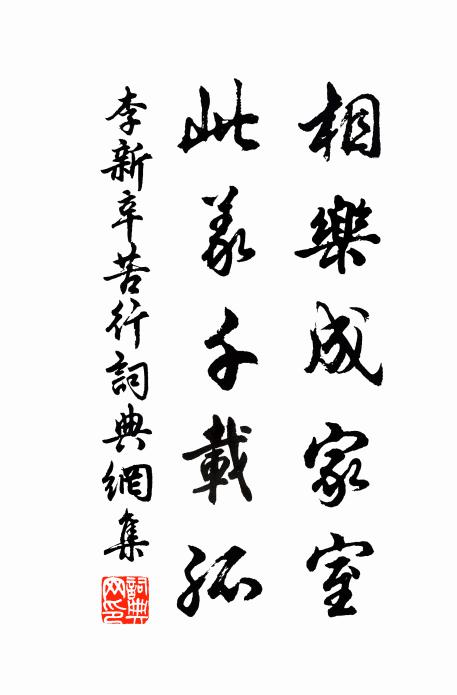 相樂成家室
此義千載孤
李新辛苦行詞典網集
詞典網印